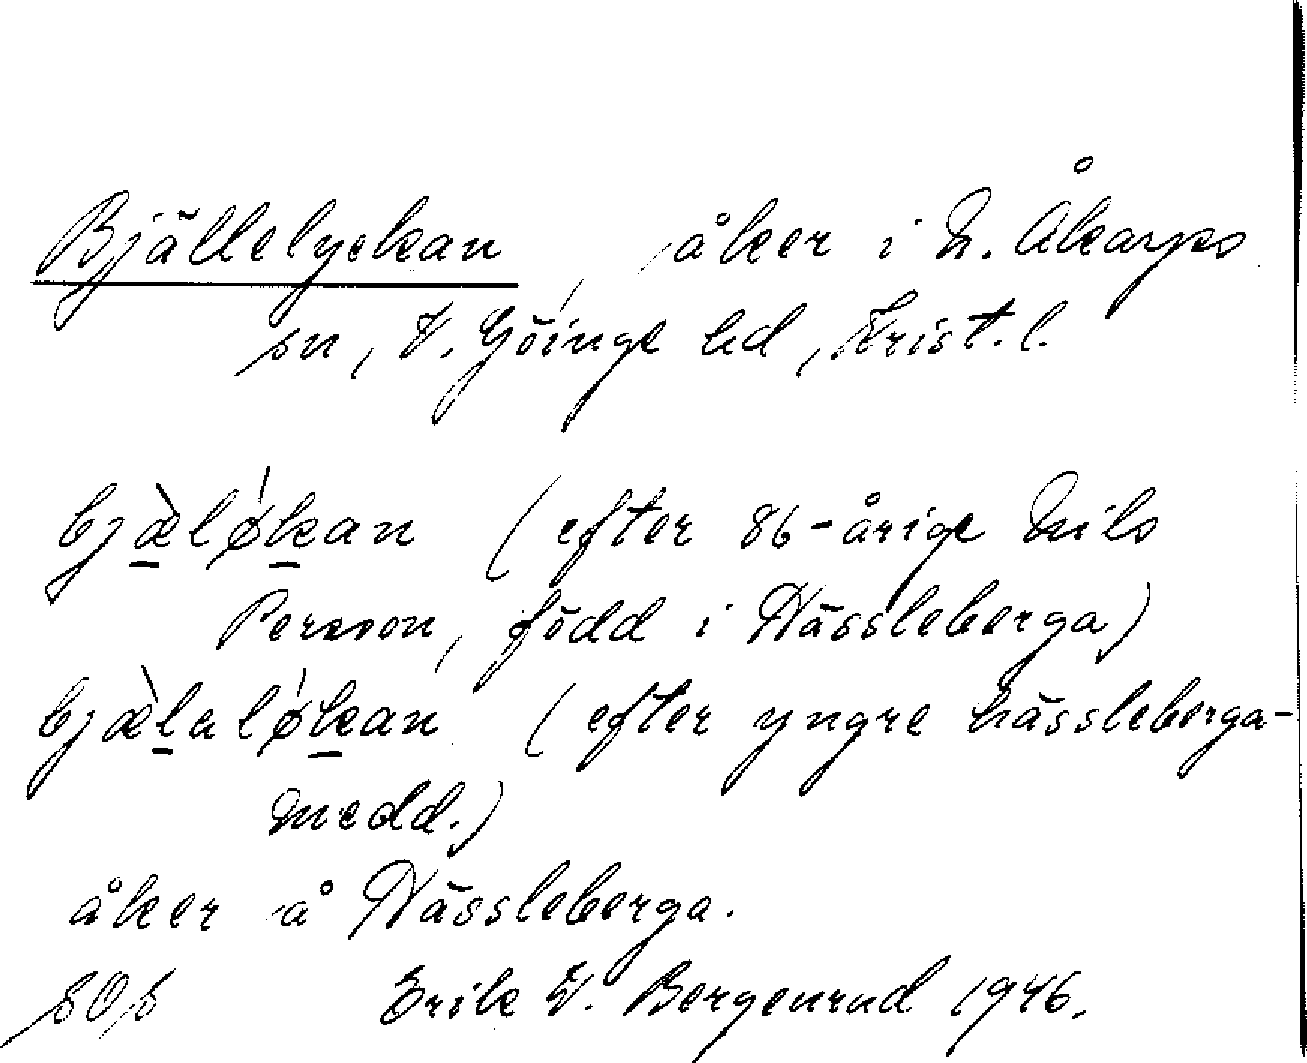 Bjällelyckan, åker i N. Åkarps
sn, V. Göinge hd, Krist. l.
bjæ̀lǿkan (efter 86-årige Nils
Persson, född i Hässleberga)
bjæ̀lalǿkan (efter yngre hässleberga-
medd.)
åker å Hässleberga.
Erik V. Bergenrud 1946.